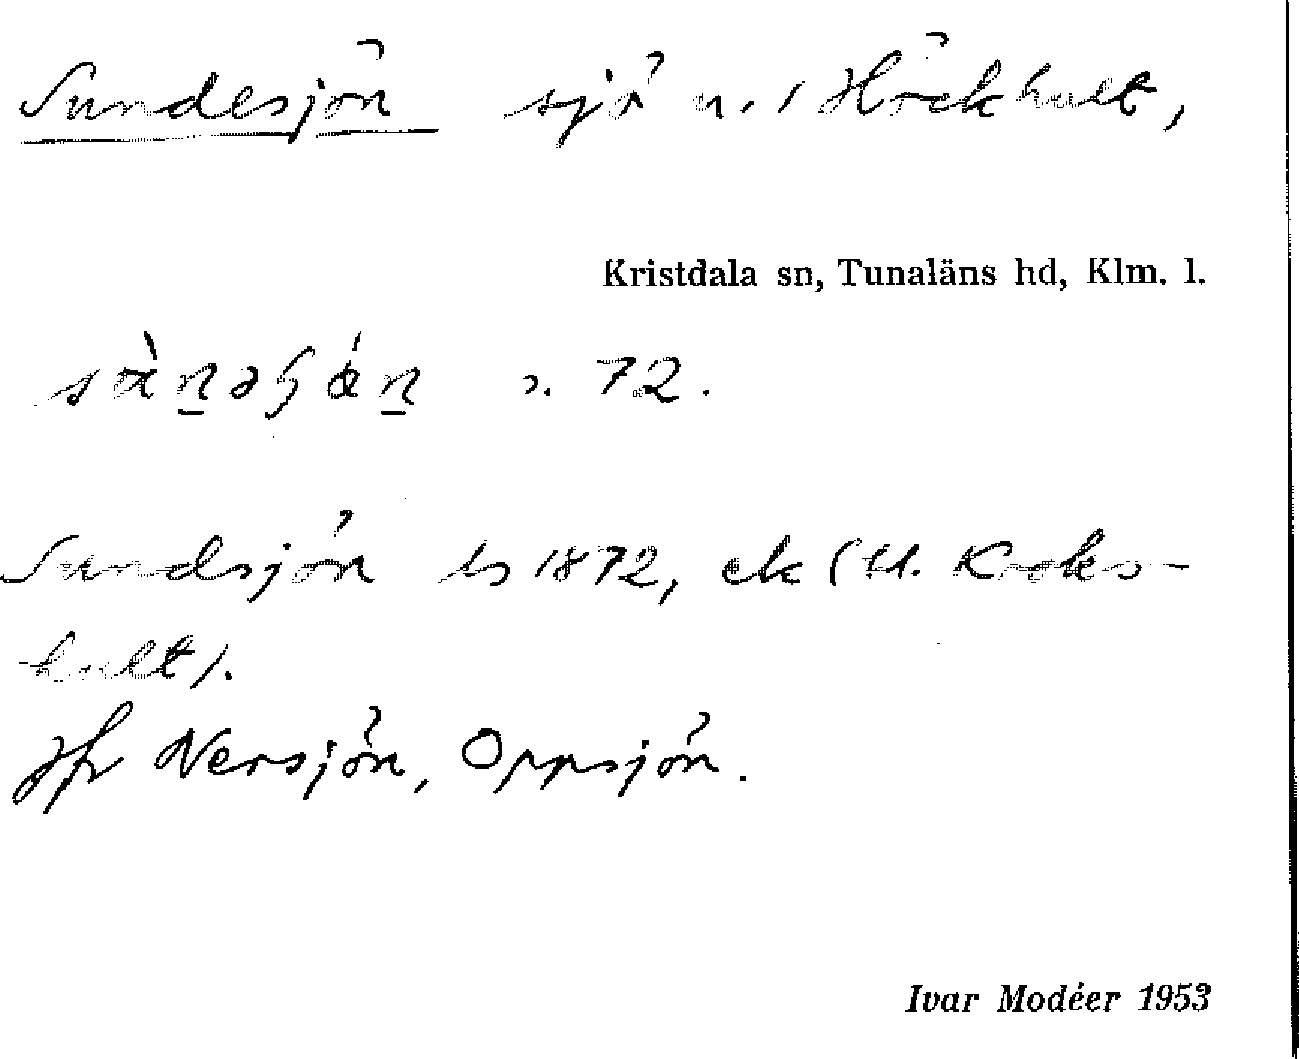 Sundesjön sjö u. Höckhult,
Kristdala sn, Tunaläns hd, Klm. l.
s. 72.
Sundsjön ls 1872, ek (til. Kroks-
hult).
Jfr Versjön, Oppsjön.
Ivar Modéer 1953